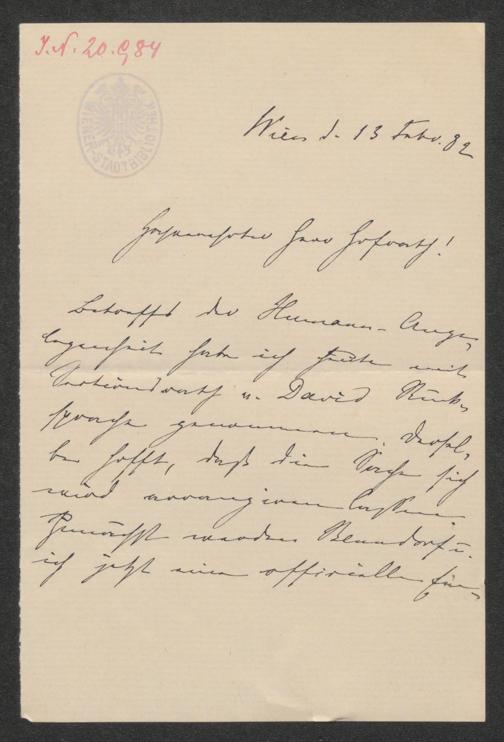 J.N. 20.984
WIENER-STADTBIBLIOTHEK
Wien d. 13 Febr. 82
Hochverehrter Herr Hofrath!
Betreffs der Humann-Ange-
legenheit habe ich heute mit
Sectionsrath v. David Rück-
sprache genommen. Dersel-
be hofft, daß die Sache sich
wird arrangiren lassen.
Zunächst werden Benndorf u.
ich jetzt einen officiellen Ein-